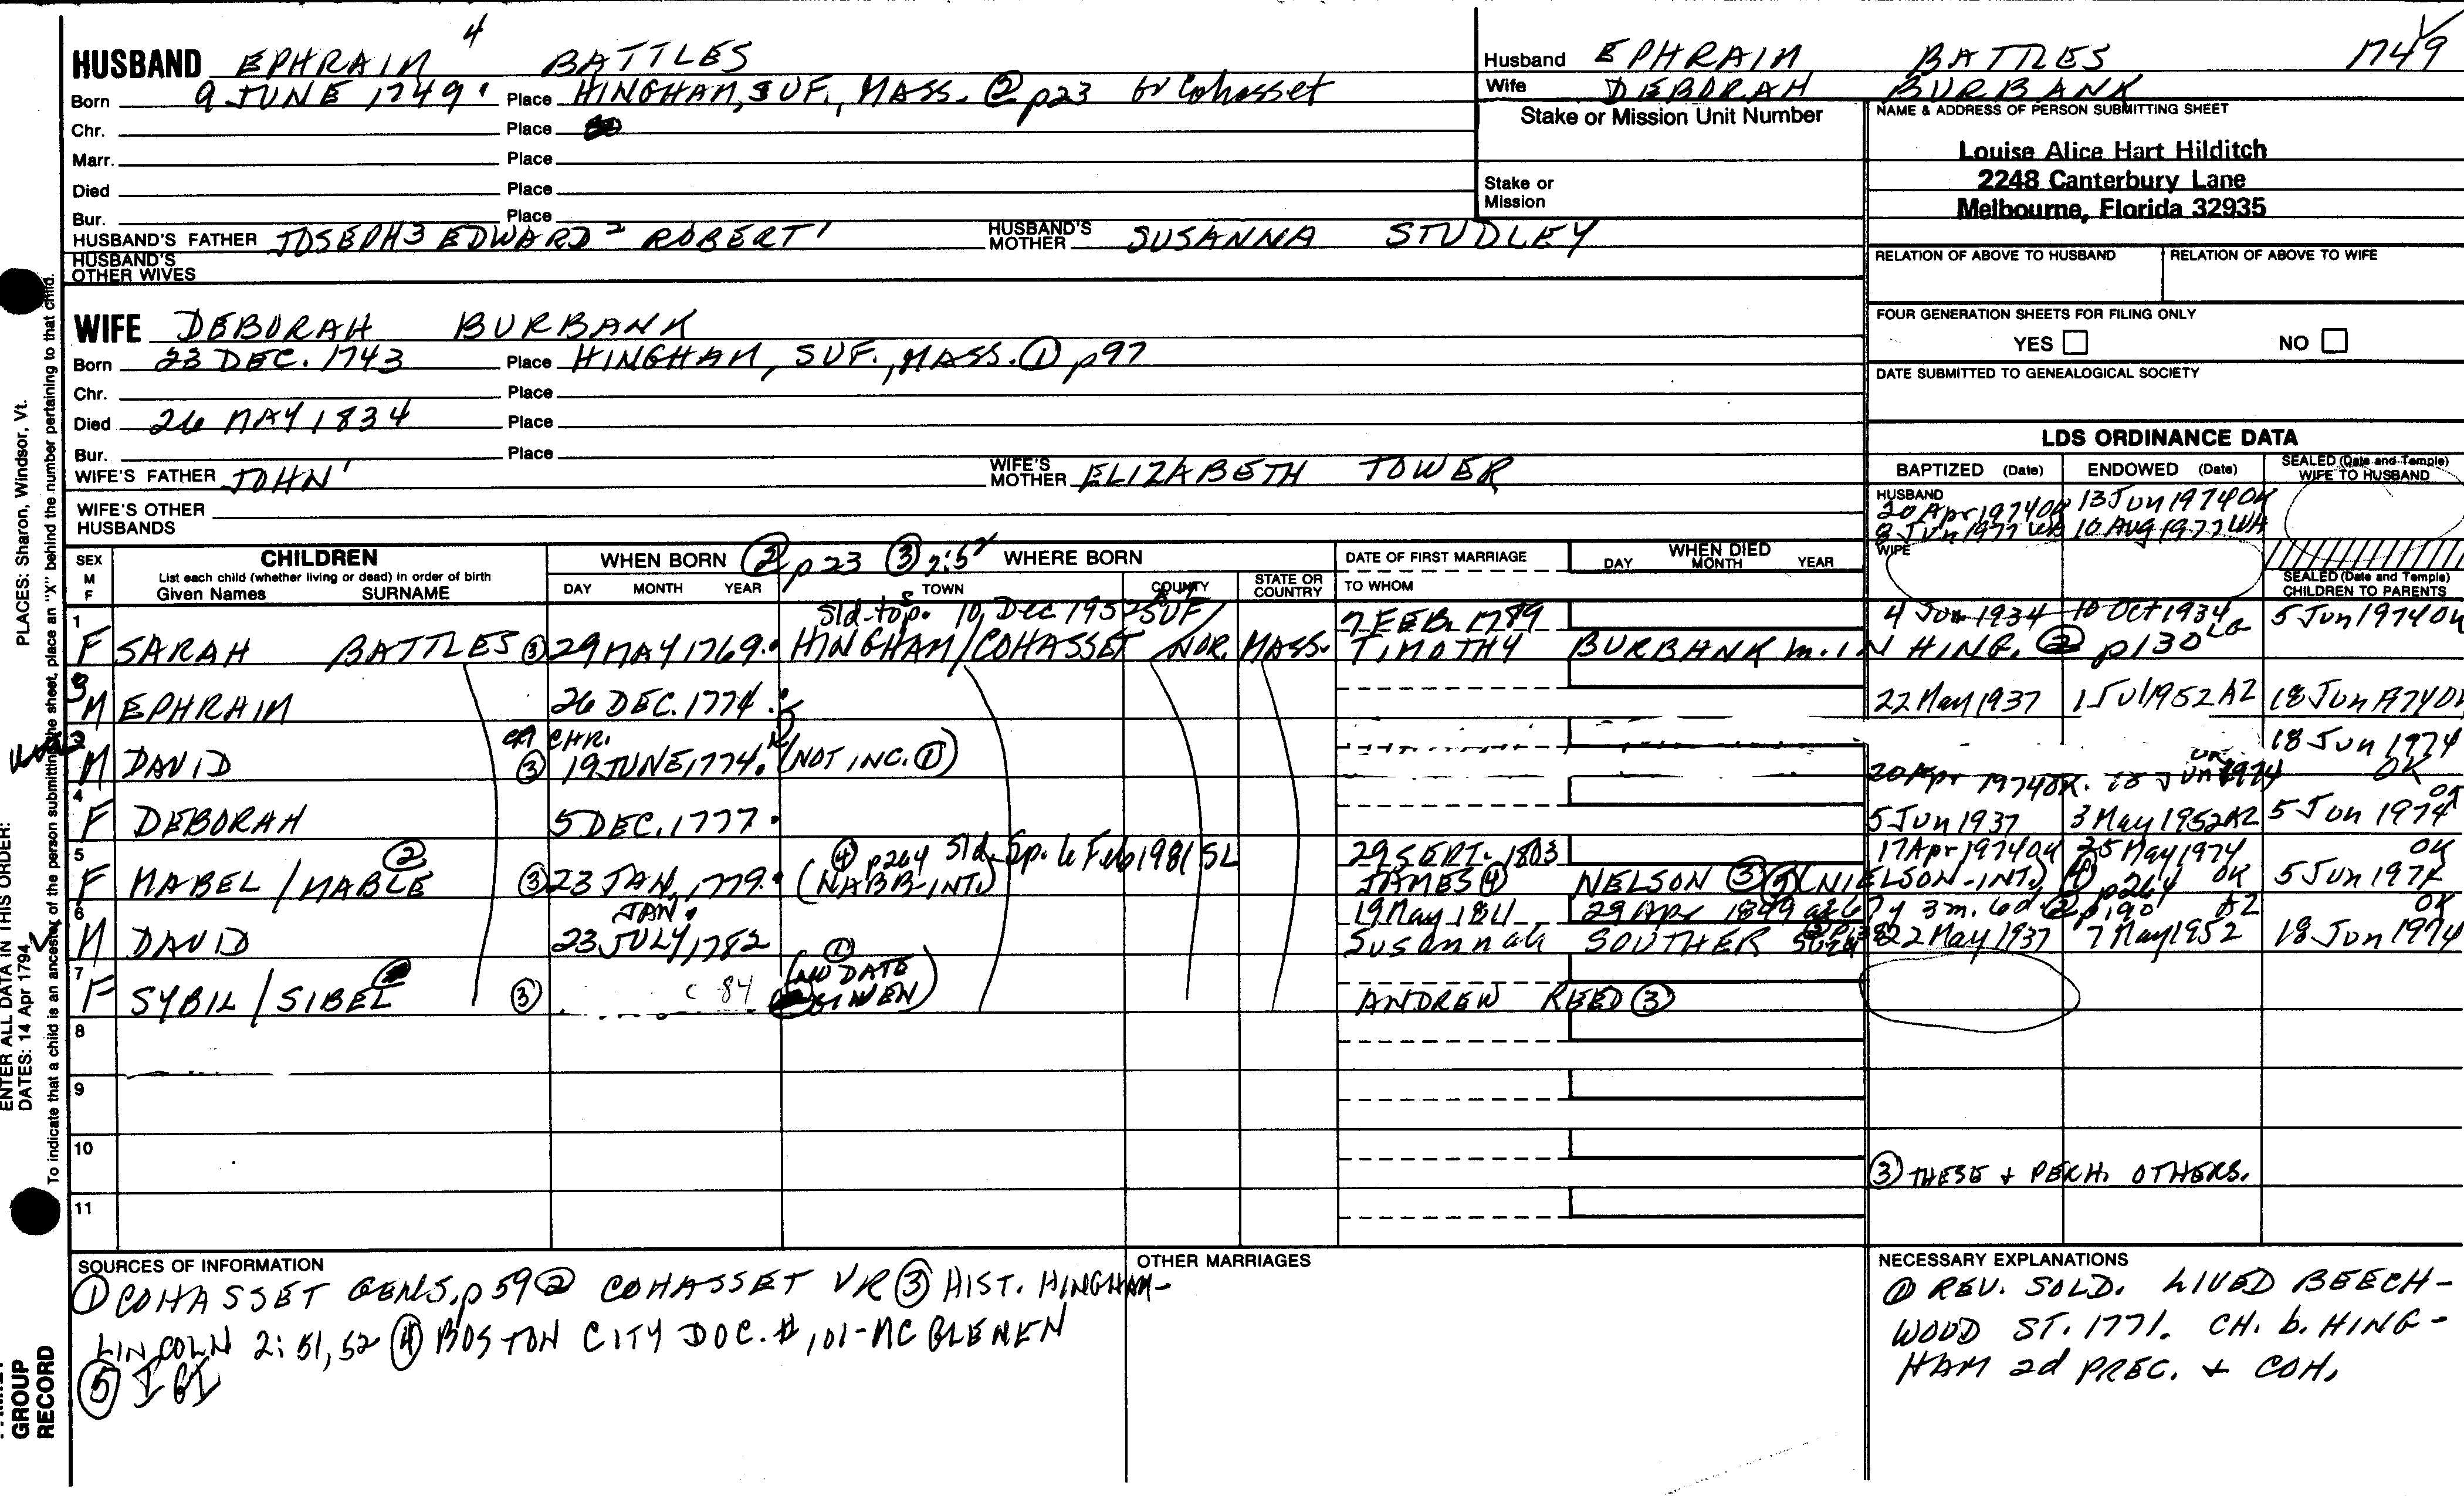 HUSBAND EPHRAIM 4 BATTLES
Born 9 JUNE 1749. Place HINGHAM, SUF., MASS. ② p23 or Cohasset
Chr. Place
Marr. Place
Died Place
Bur. Place
HUSBAND'S FATHER JOSEPH 3 EDWARD 2 ROBERT 1 HUSBAND'S MOTHER SUSANNA STUDLEY
HUSBAND'S OTHER WIVES
Husband EPHRAIM BATTLES 1749
Wife DEBORAH BURBANK
Stake or Mission Unit Number
Stake or Mission
NAME & ADDRESS OF PERSON SUBMITTING SHEET
Louise Alice Hart Hilditch
2248 Canterbury Lane
Melbourne, Florida 32935
RELATION OF ABOVE TO HUSBAND RELATION OF ABOVE TO WIFE
FOUR GENERATION SHEETS FOR FILING ONLY
YES NO
DATE SUBMITTED TO GENEALOGICAL SOCIETY
WIFE DEBORAH BURBANK
Born 23 DEC. 1743 Place HINGHAM, SUF., MASS. ① p97
Chr. Place
Died 26 MAY 1834 Place
Bur. Place
WIFE'S FATHER JOHN 1 WIFE'S MOTHER ELIZABETH TOWER
WIFE'S OTHER HUSBANDS
LDS ORDINANCE DATA
BAPTIZED (Date) ENDOWED (Date) SEALED (Date and Temple) WIFE TO HUSBAND
HUSBAND
20 Apr 1974 OK 13 Jun 1974 OK
8 Jun 1977 WA 10 Aug 1977 WA
WIFE
SEALED (Date and Temple) CHILDREN TO PARENTS
SEX M F
CHILDREN
List each child (whether living or dead) in order of birth
Given Names SURNAME
WHEN BORN ② p23 ③ 2:52 WHERE BORN
DAY MONTH YEAR TOWN COUNTY STATE OR COUNTRY
DATE OF FIRST MARRIAGE
TO WHOM
WHEN DIED
DAY MONTH YEAR
1 Sld-top. 10 Dec 1952 SUF 7 FEB. 1789 4 Jun 1934 10 Oct 1934 LG 5 Jun 1974 OK
F SARAH BATTLES ③ 29 MAY 1769. HINGHAM/COHASSET NOR. MASS. TIMOTHY BURBANK m. IN HING. ② p130
3 M EPHRAIM 26 DEC. 1774. 22 May 1937 1 Jul 1952 AZ 18 Jun 1974 OK
CHR.
M DAVID ③ 19 JUNE, 1774. (NOT INC. ①) 20 Apr 1974 OK. 18 Jun 1974 OK
4 F DEBORAH 5 DEC. 1777. 5 Jun 1937 3 May 1952 AZ 5 Jun 1974 OK
5 ② ④ p264 Sld. Sp. 6 Feb 1981 SL 29 SEPT. 1803 17 Apr 1974 OK 25 May 1974 OK
F MABEL / MABLE ③ 23 JAN. 1779. (NABB-INT.) JAMES ④ NELSON ③ ⑤ (NIELSON-INT.) ④ p264 5 Jun 1974 OK
6 JAN. 19 May 1811 29 Apr 1849 at 67y 3m. 6d ② p190 AZ
M DAVID 23 JULY, 1782 Susannah SOUTHER 22 May 1937 7 May 1952 18 Jun 1974
7 F SYBIL / SIBEL ③ c 84 ① (NO DATE GIVEN) ANDREW REED ③
8
9
10
11
③ THESE + PERH. OTHERS.
SOURCES OF INFORMATION
① COHASSET GENS. p 59 ② COHASSET VR ③ HIST. HINGHAM-
LINCOLN 2: 51, 52 ④ BOSTON CITY DOC. # 101-MC GLENEN
⑤ IGI
OTHER MARRIAGES
NECESSARY EXPLANATIONS
① REV. SOLD. LIVED BEECH-
WOOD ST. 1771. CH. b. HING-
HAM 2d PREC. + COH.
PLACES: Sharon, Windsor, Vt.
ENTER ALL DATA IN THIS ORDER:
DATES: 14 Apr 1794
To indicate that a child is an ancestor of the person submitting the sheet, place an "X" behind the number pertaining to that child.
GROUP
RECORD